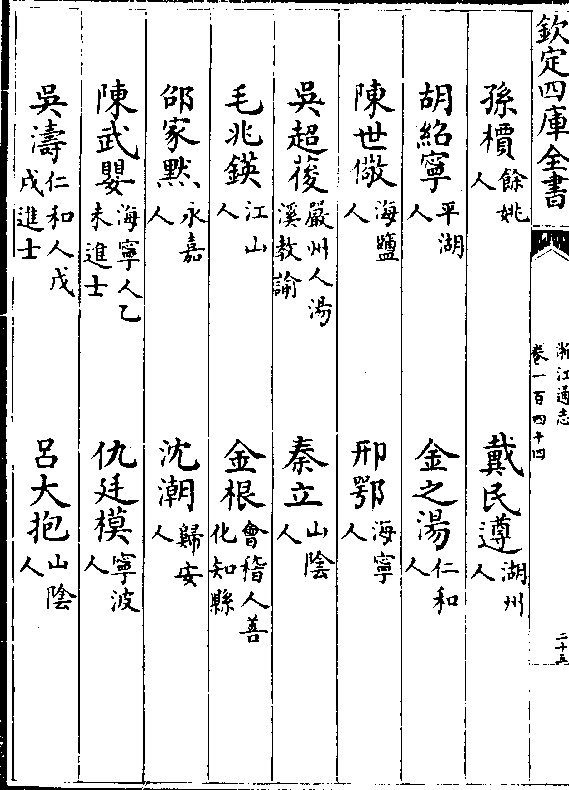 欽定四庫全書
浙江通志
卷一百四十四
二十五
孫檟餘姚人 戴民遵湖州人
胡紹寧平湖人 金之湯仁和人
陳世儆海鹽人 邢鄂海寧人
吳超葰嚴州人湯溪教諭 秦立山陰人
毛兆鍈江山人 金根會稽人善化知縣
邵家默永嘉人 沈潮歸安人
陳武嬰海寧人乙未進士 仇廷模寧波人
吳濤仁和人戊戌進士 呂大抱山陰人